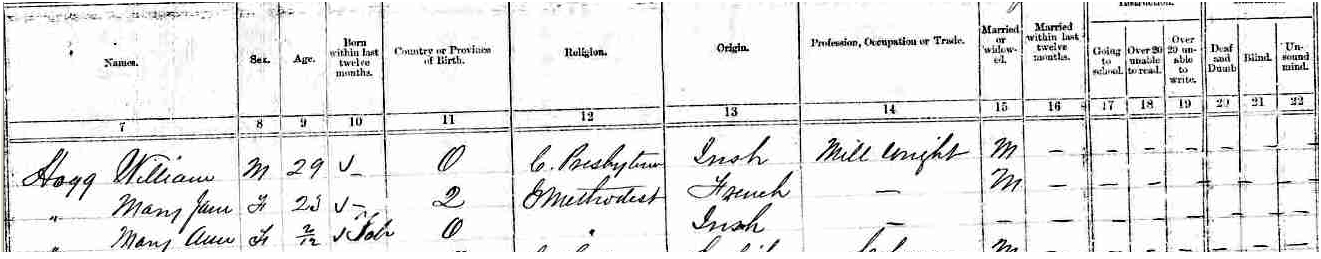 Names. Sex. Age. Born within last twelve months. Country or Province of Birth. Religion. Origin. Profession, Occupation or Trade. Married or widowed. Married within last twelve months. Going to school. Over 20 unable to read. Over 20 unable to write. Deaf and Dumb Blind. Unsound mind.
7 8 9 10 11 12 13 14 15 16 17 18 19 20 21 22
Hogg William M 29 – O C. Presbyterian Irish Mill Wright M – – – – – – –
" Mary Jane F 23 – Q Methodist French – M – – – – – – –
" Mary Ann F 2/12 Feb O " Irish – – – – – – – –
M